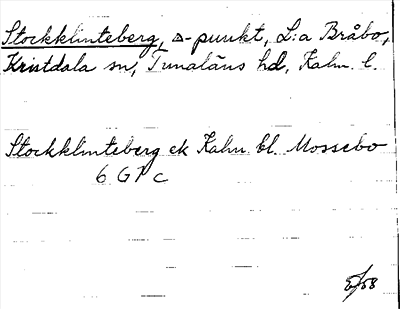 Stockklinteberg, △-punkt, L:a Bråbo,
Kristdala sn, Tunaläns hd, Kalm. l.
Stockklinteberg ek Kalm. bl. Mossebo
6 G 7 c
/58